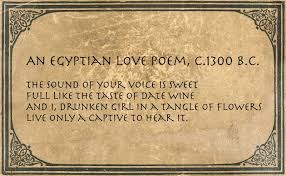 AN EGYPTIAN LOVE POEM, C.1300 B.C.
THE SOUND OF YOUR VOICE IS SWEET
FULL LIKE THE TASTE OF DATE WINE
AND I, DRUNKEN GIRL IN A TANGLE OF FLOWERS
LIVE ONLY A CAPTIVE TO HEAR IT.